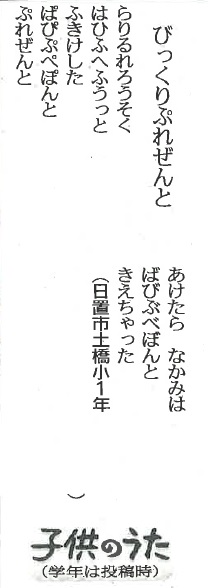 びっくりぷれぜんと
らりるれろうそく
はひふへふうっと
ふきけした
ぱぴぷぺぽんと
ぷれぜんと
あけたら　なかみは
ばびぶべぼんと
きえちゃった
（日置市土橋小1年　　　　）
子供のうた
（学年は投稿時）